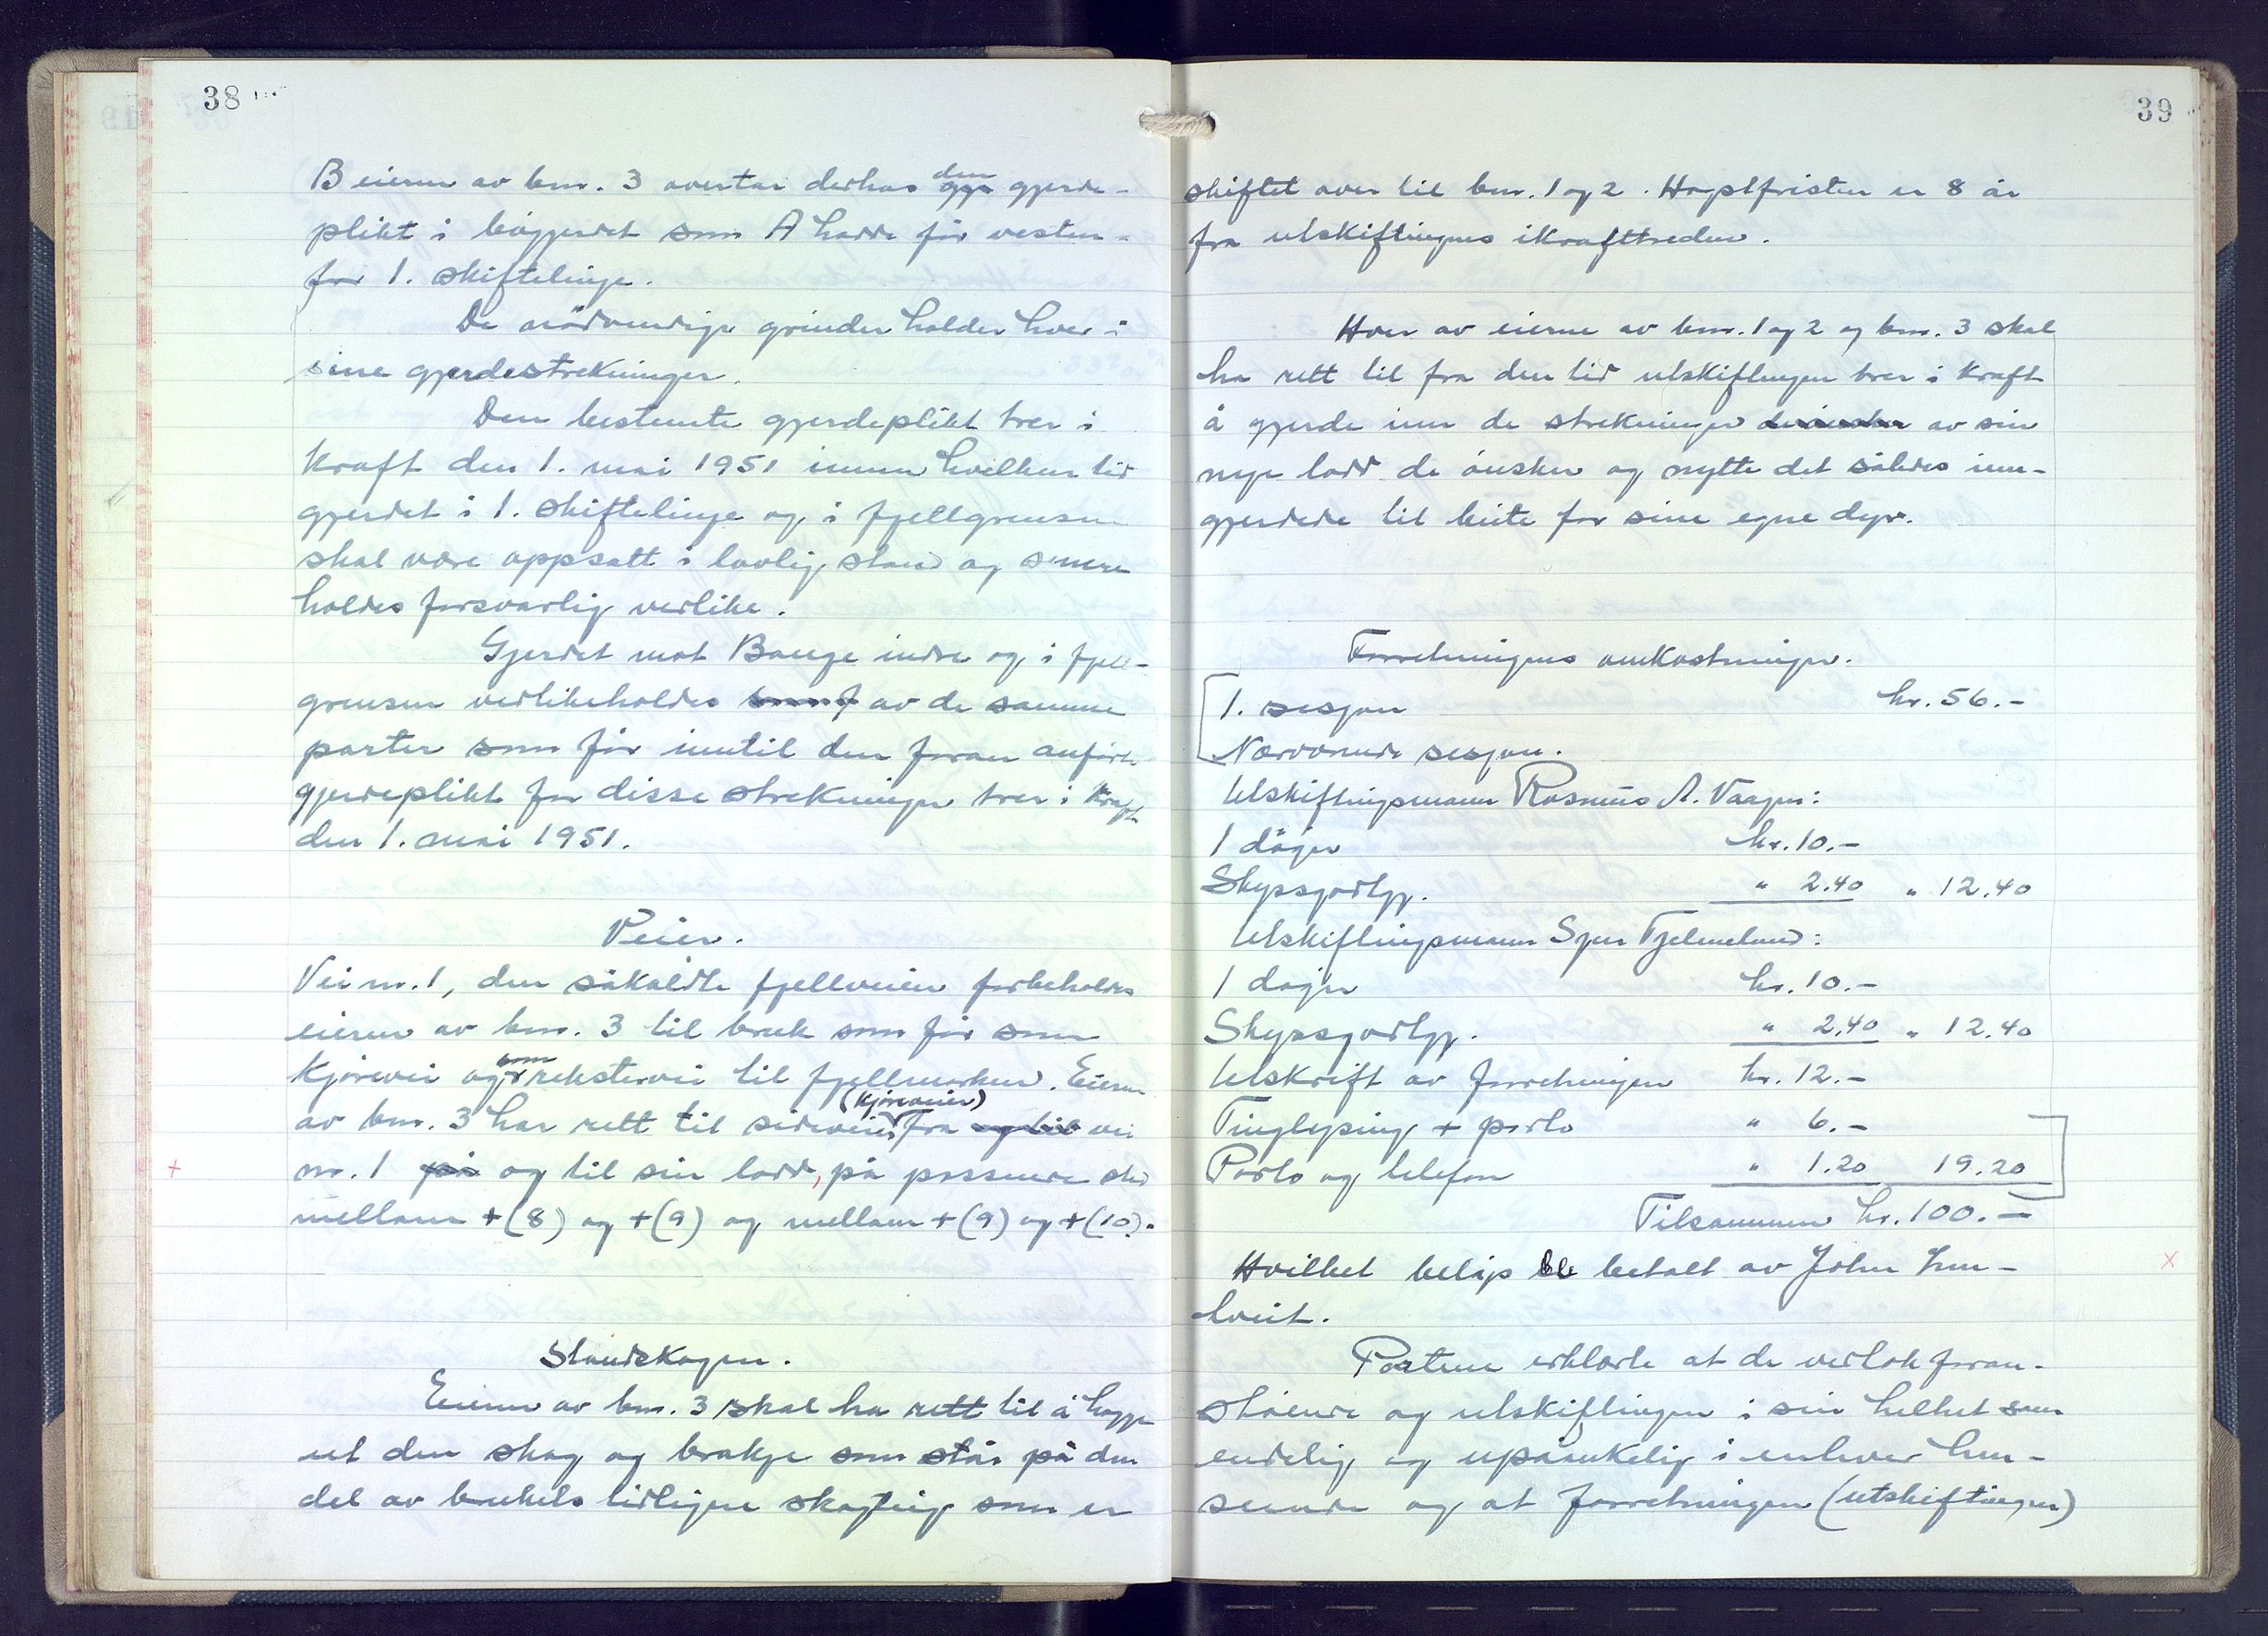 38
B eieren av bnr. 3 overtar derhos den gjerde-
plikt i bøgjerdet som A hadde før vesten-
for 1. skiftelinje.
De nödvendige grinder holder hver i
sine gjerdestrekninger.
Den bestemte gjerdeplikt trer i
kraft den 1. mai 1951 innen hvilken tid
gjerdet i 1. skiftelinje og i fjellgrensen
skal være oppsatt i lovlig stand og senere
holdes forsvarlig vedlike.
Gjerdet mot Bauge indre og i fjell-
grensen vedlikeholdes som f av de samme
parter som før inntil den foran anførte
gjerdeplikt for disse strekninger trer i kraft
den 1. mai 1951.
Veier.
Vei nr. 1, den såkaldte fjellveien forbeholdes
eieren av bnr. 3 til bruk som før som
kjørevei og som rekstervei til fjellmarken. Eieren
av bnr. 3 har rett til sideveier (kjøreveier) fra og til vei
nr. 1 på og til sin lodd, på passende sted
mellom +(8) og +(9) og mellom +(9) og +(10).
Standskogen.
Eieren av bnr. 3 skal ha rett til å hogge
ut den skog og brakje som står på den
del av brukets tidligere skogteig som er
39
skiftet over til bnr. 1 og 2. Hogstfristen er 8 år
fra utskiftingens ikrafttreden.
Hver av eierne av bnr. 1 og 2 og bnr. 3 skal
ha rett til fra den tid utskiftingen trer i kraft
å gjerde inn de strekninger de ønsker av sin
nye lodd de ønsker og nytte det således inn-
gjerdede til beite for sine egne dyr.
Forretningens omkostninger.
1. sesjon kr. 56.-
Nærværende sesjon.
Utskiftingsmann Rasmus A. Vaagen:
1 døger kr. 10.-
Skyssgodtgj. " 2.40 " 12.40
Utskiftingsmann Sjur Fjelmeland:
1 døger kr. 10.-
Skyssgodtgj. " 2.40 " 12.40
Utskrift av forretningen kr. 12.-
Tinglysing + porto " 6.-
Porto og telefon " 1.20 19.20
Tilsammen kr. 100.-
Hvilket beløp ble betalt av John Lun-
hveit.
Partene erklærte at de vedtok foran-
stående og utskiftingen i sin helhet som
endelig og upåankelig i enhver hen-
seende og at forretningen (utskiftingen)